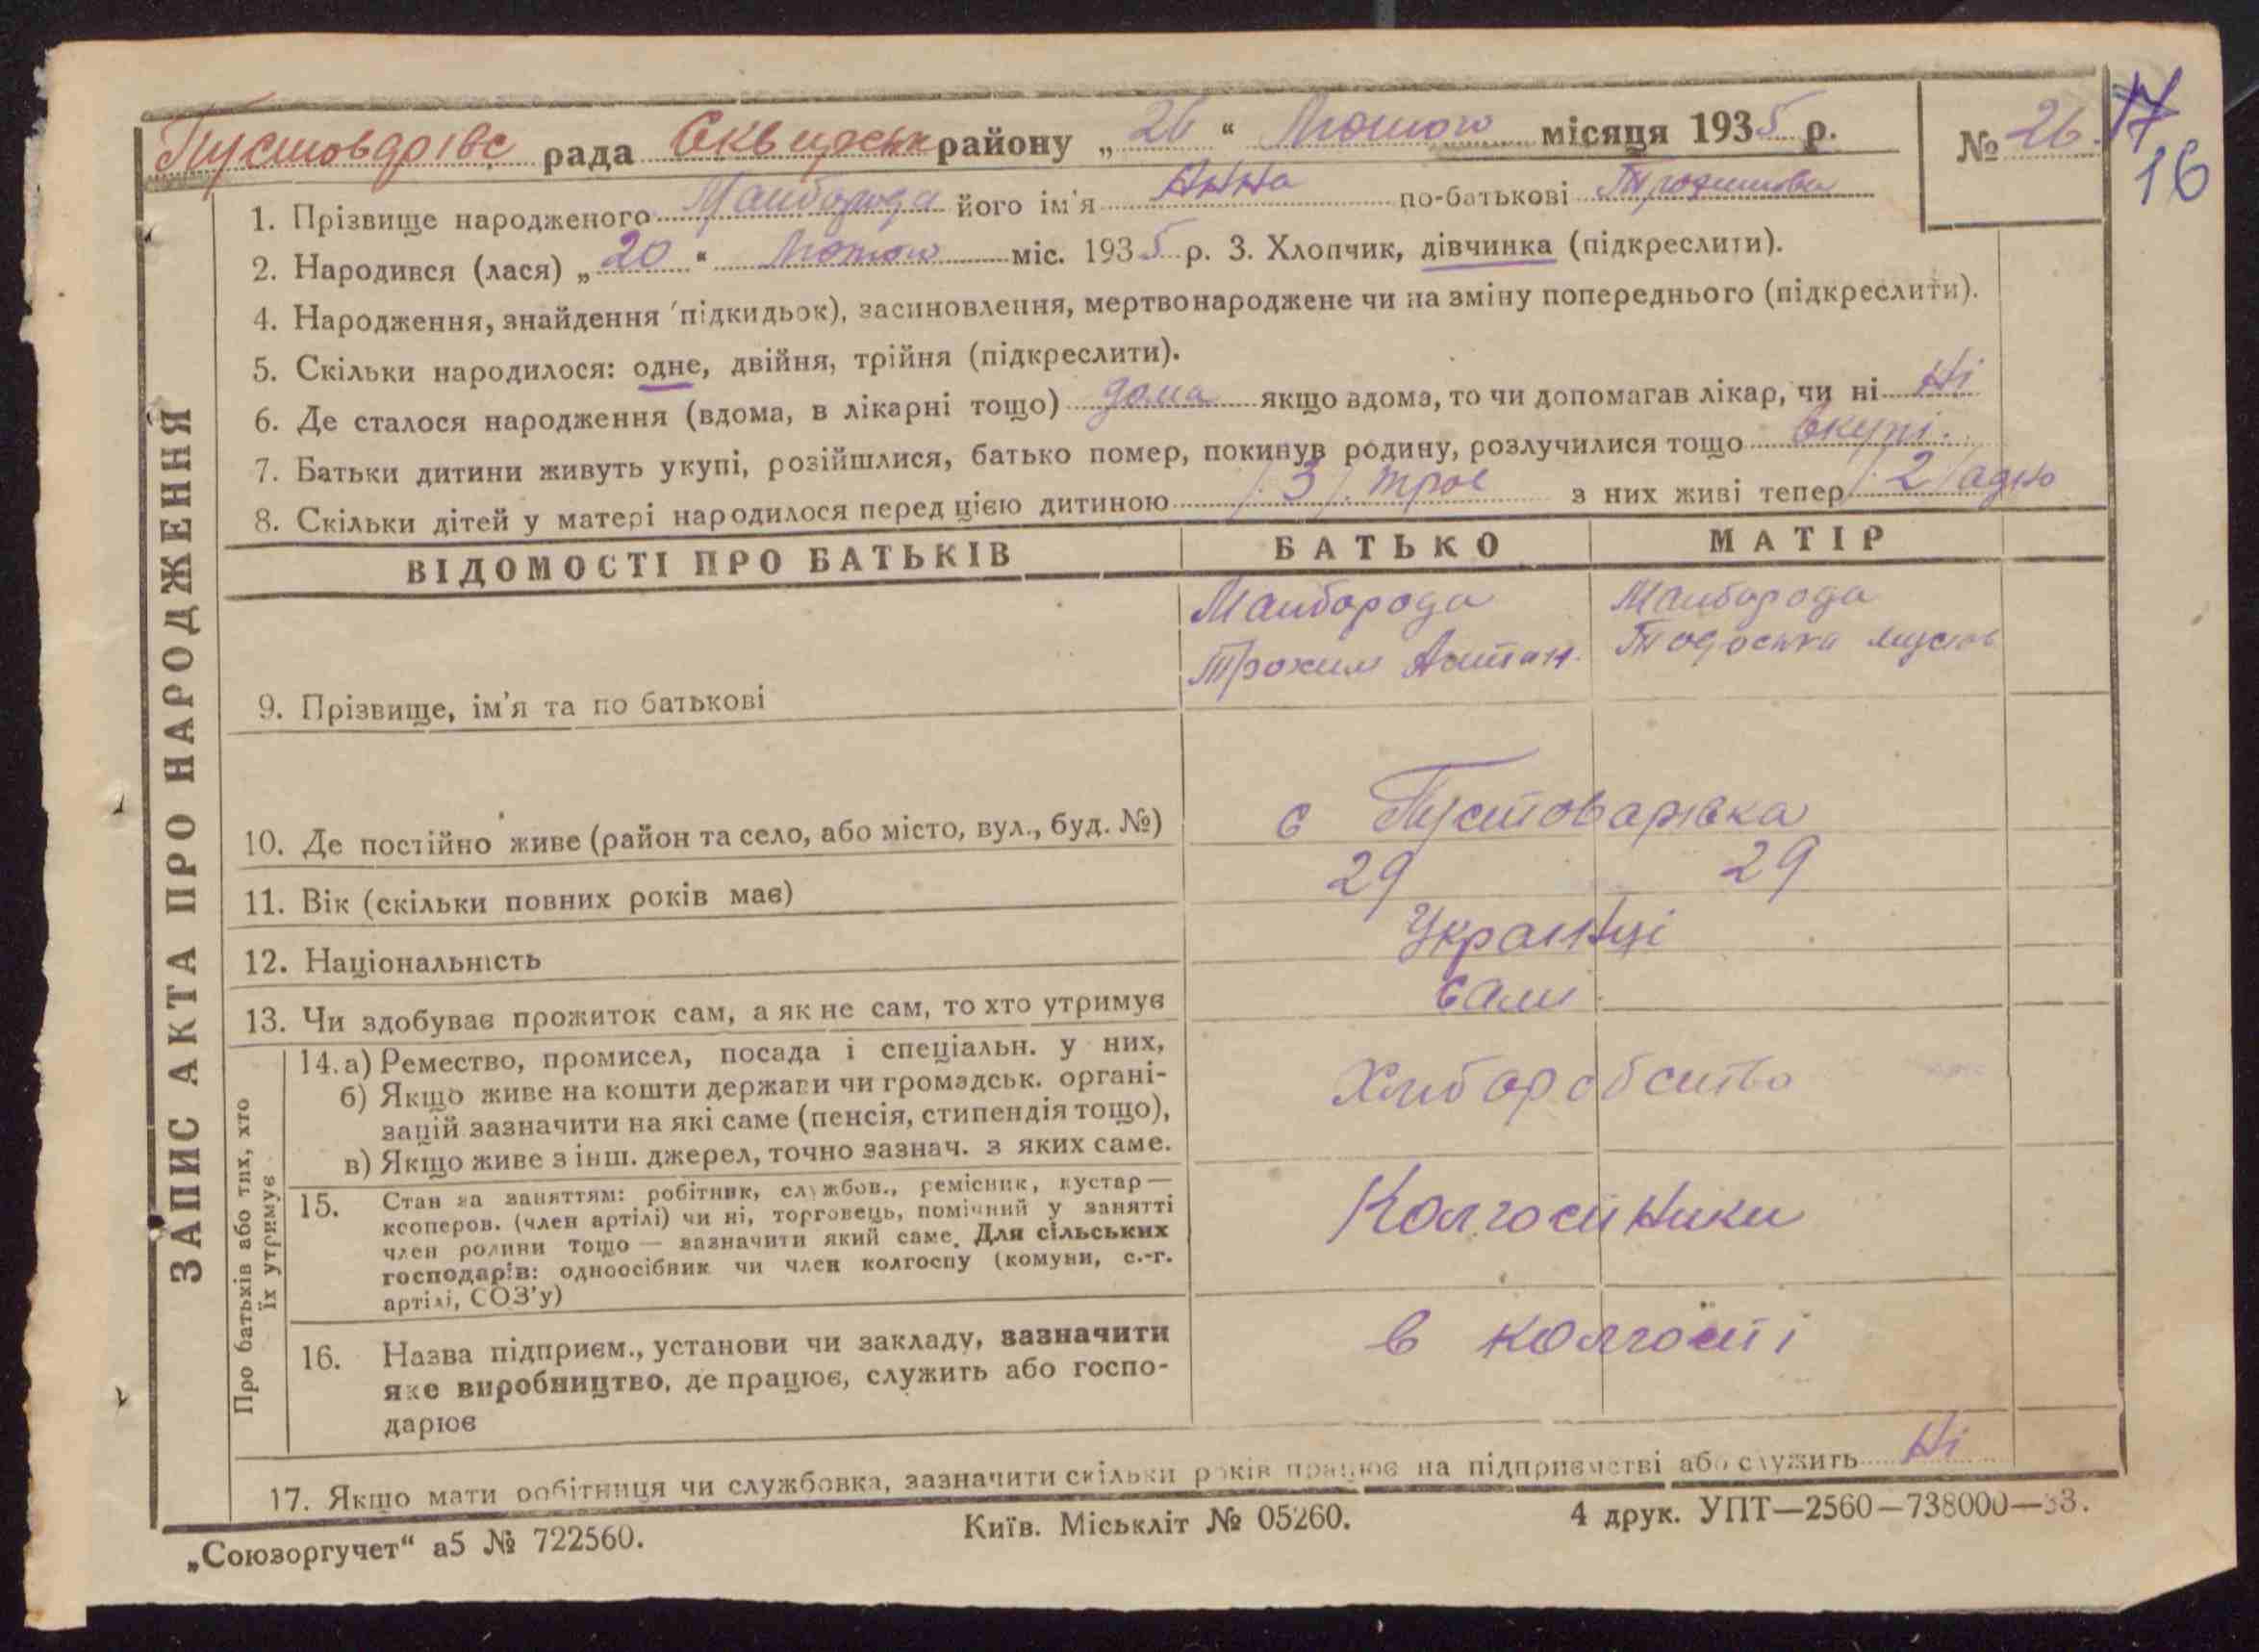 Пустовдрівс рада Сквирськ району „26“ Лютого місяця 1935 р. № 26. 17
16
1. Прізвище народженого Манборода його ім'я Анна по-батькові Трохимовна
2. Народився (лася) „20“ Лютого міс. 1935 р. 3. Хлопчик, дівчинка (підкреслити).
4. Народження, знайдення (підкидьок), засиновлення, мертвонароджене чи на зміну попереднього (підкреслити).
5. Скільки народилося: одне, двійня, трійня (підкреслити).
6. Де сталося народження (вдома, в лікарні тощо) дома якщо вдома, то чи допомагав лікар, чи ні Ні
7. Батьки дитини живуть укупі, розійшлися, батько помер, покинув родину, розлучилися тощо вкупі.
8. Скільки дітей у матері народилося перед цією дитиною /3/. трое з них живі тепер /2/
ЗАПИС АКТА ПРО НАРОДЖЕННЯ
ВІДОМОСТІ ПРО БАТЬКІВ БАТЬКО МАТІР
9. Прізвище, ім'я та по батькові
Манборода Манборода
Трохим Антан. Тодоська
10. Де постійно живе (район та село, або місто, вул., буд. №) с Пустоварівка
11. Вік (скільки повних років має) 29 29
12. Національність Украінці
13. Чи здобуває прожиток сам, а як не сам, то хто утримує сами
Про батьків або тих, хто
їх утримує
14. а) Ремество, промисел, посада і спеціальн. у них,
б) Якщо живе на кошти держави чи громадськ. органі-
зацій зазначити на які саме (пенсія, стипендія тощо),
в) Якщо живе з інш. джерел, точно зазнач. з яких саме.
Хлиборобство
15. Стан за заняттям: робітник, службов., ремісник, кустар —
кооперов. (член артілі) чи ні, торговець, помічний у занятті
член родини тощо — зазначити який саме. Для сільських
господарів: одноосібник чи член колгоспу (комуни, с.-г.
артілі, СОЗ'у)
Колгоспники
16. Назва підприєм., установи чи закладу, зазначити
яке виробництво, де працює, служить або госпо-
дарює
в колгоспі
17. Якщо мати робітниця чи службовка, зазначити скільки років працює на підприємстві або служить Ні
„Союзоргучет“ а5 № 722560. Київ. Міськліт № 05260. 4 друк. УПТ—2560—738000—33.